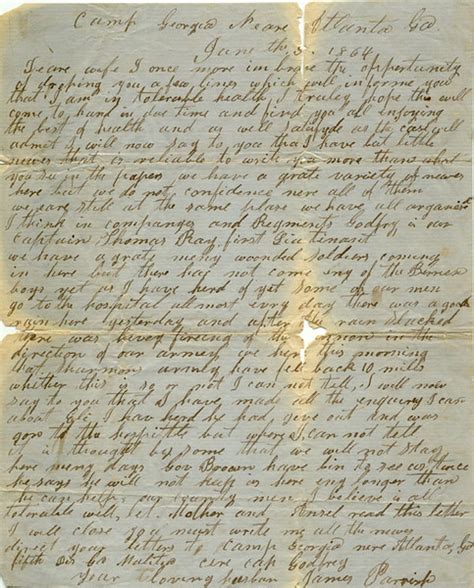 Camp Georgia Neare Atlanta Ga
June the 3. 1864
Deare wife I once more imbrace the opportunity
of droping you a few lines which will informe you
that I am in tolerable health, I truley hope this will
come to hand in due time and find you all enjoying
the best of health and as well satisfyde as the case will
admit I will now say to you that I have but little
newes that is reliable to write you more than what
you see in the papers we have a grate variety of newes
here but we do not confidence nere all of them
we are still at the same place we have all organised
I think in companyes and Regments Godfry is our
Captain Thomas Ray first Liutenant
we have a grate meny wounded soldiers coming
in here but there has not come eny of the
boys yet as I have herd of yet some of our men
go to the hospital allmost evry day there was a good
rain here yesterday and after the rain slacked
there was hevey fireing of the cannon in the
direction of our armey we her this morning
that Sharmons armey have fell back 10 miles
whither this is so or not I can not tell, I will now
say to you that I have made all the enquiry I can
about Eli I have herd he had gave out and was
gorn to the hospittle but where I can not tell
it is thought by some that we will not stay
here meny days Gov Brown have bin to see us twice
he says he will not keep us here eny longer than
he can help, our county men I believe is all
tolorable well, let Mother and Ansel read this letter
I will close you must write me all the newes
direct your letters to Camp Georgia nere Atlanta, Ga
fifth Ga Malitia care cap Godfrey
Your loving husban James Parrish